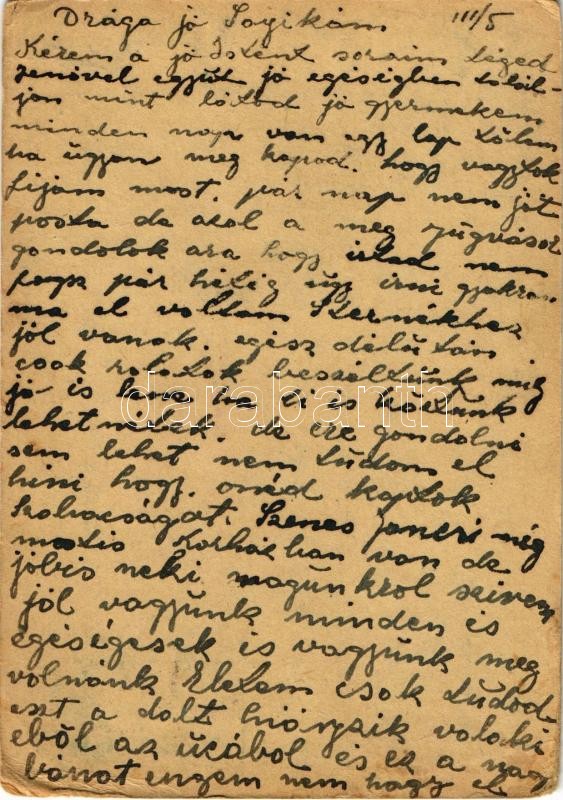 Drága jó Sayikám III/5
Kérem a jó Istent soraim téged
Jenövel együt jó egeségben talál-
jon mint látod jó gyermekem
minden nap van egy lap tölem
ha úgyan meg kapod. hogy vagytok
fijam most. pár nap nem jöt
posta de azal a meg nyugvásor
gondolok ara hogy irtad nem
fogsz pár hétig úgy irni gyakran
ma el voltam Sternékhez
jól vanak. egész délútán
csak rolatok beszéltünk még
jó is lene ha itt közünk
lehetnétek. de ere gondolni
sem lehet nem tudom el
hini hogy. onéd kaptok
szabacságat. Szenes Jancsi még
mostis korházban van de
jobis neki magunkrol szivem
jól vagyunk minden és
egéségesek is vagyunk meg
volnánk Eletem csak tudod
ezt a dolt hiányzik valaki
ebböl az úcábol és ez a nagy
bánat engem nem hagy el
darabanth